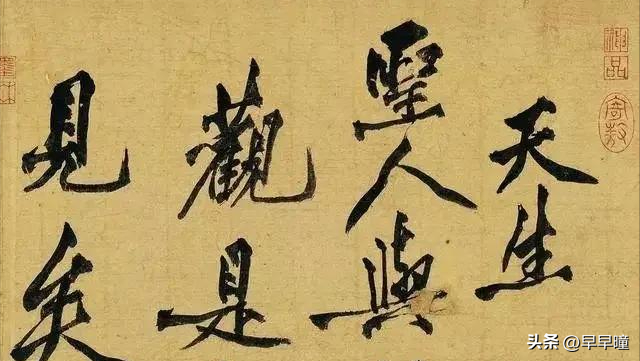 天生
聖人與
觀是
見矣
神品
頭条 @早早曈